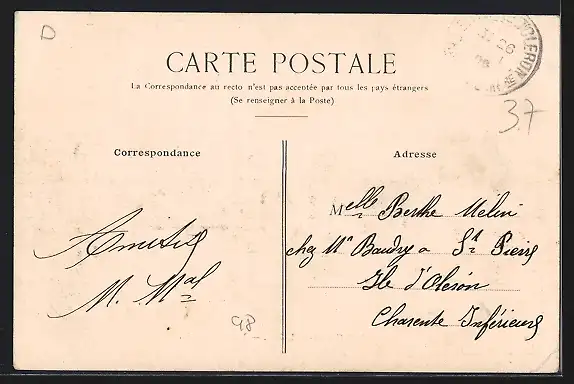 D
CARTE POSTALE
La Correspondance au recto n'est pas acceptée par tous les pays étrangers
(Se renseigner à la Poste)
37
Correspondance
Adresse
Amitiés
M. Mal
Melle Berthe Mélin
chez Mr Baudry à St Pierre
Ile d'Oleron
Charente Inférieure
98